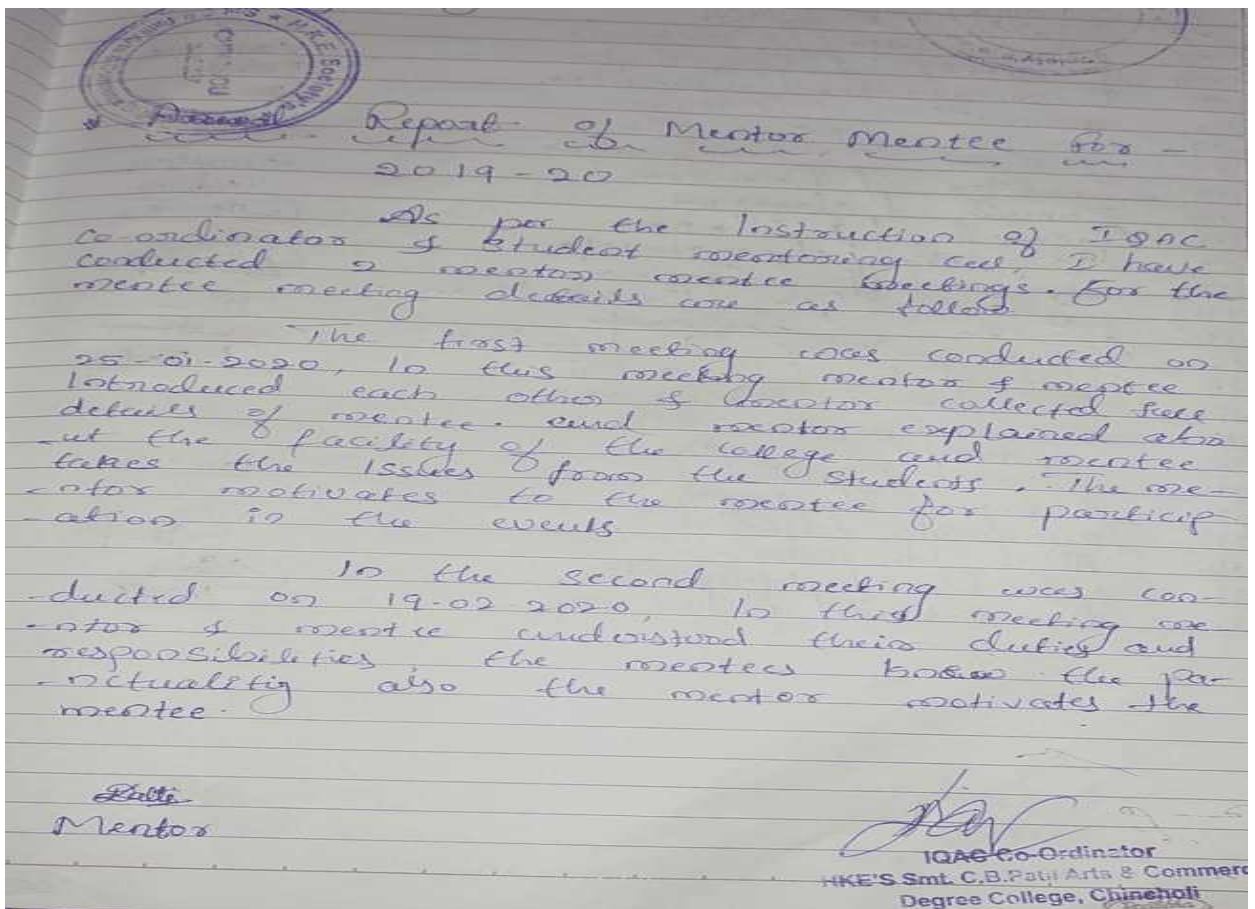 H.K.E. Society's
Annual Report of Mentor Mentee for -
2019-20
As per the Instruction of IQAC
Co-ordinator & Student mentoring cell, I have
conducted 2 mentor mentee meetings. For the
mentee meeting details are as follow
The first meeting was conducted on
25-01-2020, In this meeting mentor & mentee
Introduced each other & mentor collected full
details of mentee. and mentor explained abo
-ut the facility of the college and mentee
takes the issues from the students. The me-
-ntor motivates to the mentee for particip
-ation in the events
In the second meeting was con-
-ducted on 19-02-2020, In this meeting me
-ntor & mentee understood their duties and
responsibilities, the mentees know the pu-
-nctualitiy also the mentor motivates the
mentee.
Mentor
IQAC Co-Ordinator
HKE'S Smt. C.B.Patil Arts & Commerc
Degree College, Chincholi